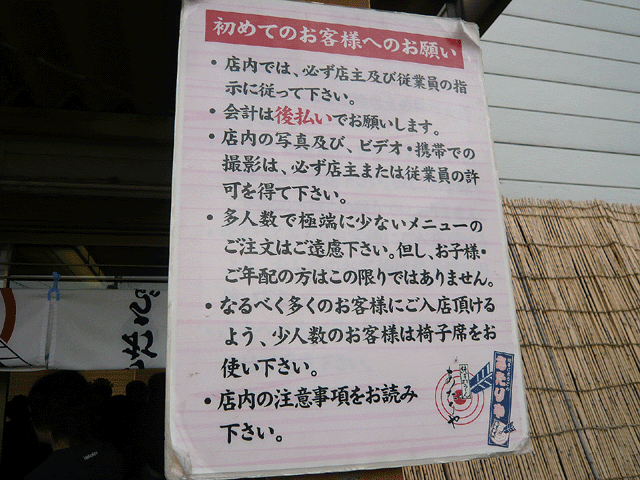 初めてのお客様へのお願い
・店内では、必ず店主及び従業員の指
示に従って下さい。
・会計は後払いでお願いします。
・店内の写真及び、ビデオ・携帯での
撮影は、必ず店主または従業員の許
可を得て下さい。
・多人数で極端に少ないメニューの
ご注文はご遠慮下さい。但し、お子様・
ご年配の方はこの限りではありません。
・なるべく多くのお客様にご入店頂ける
よう、少人数のお客様は椅子席をお
使い下さい。
・店内の注意事項をお読み
下さい。
あたりや